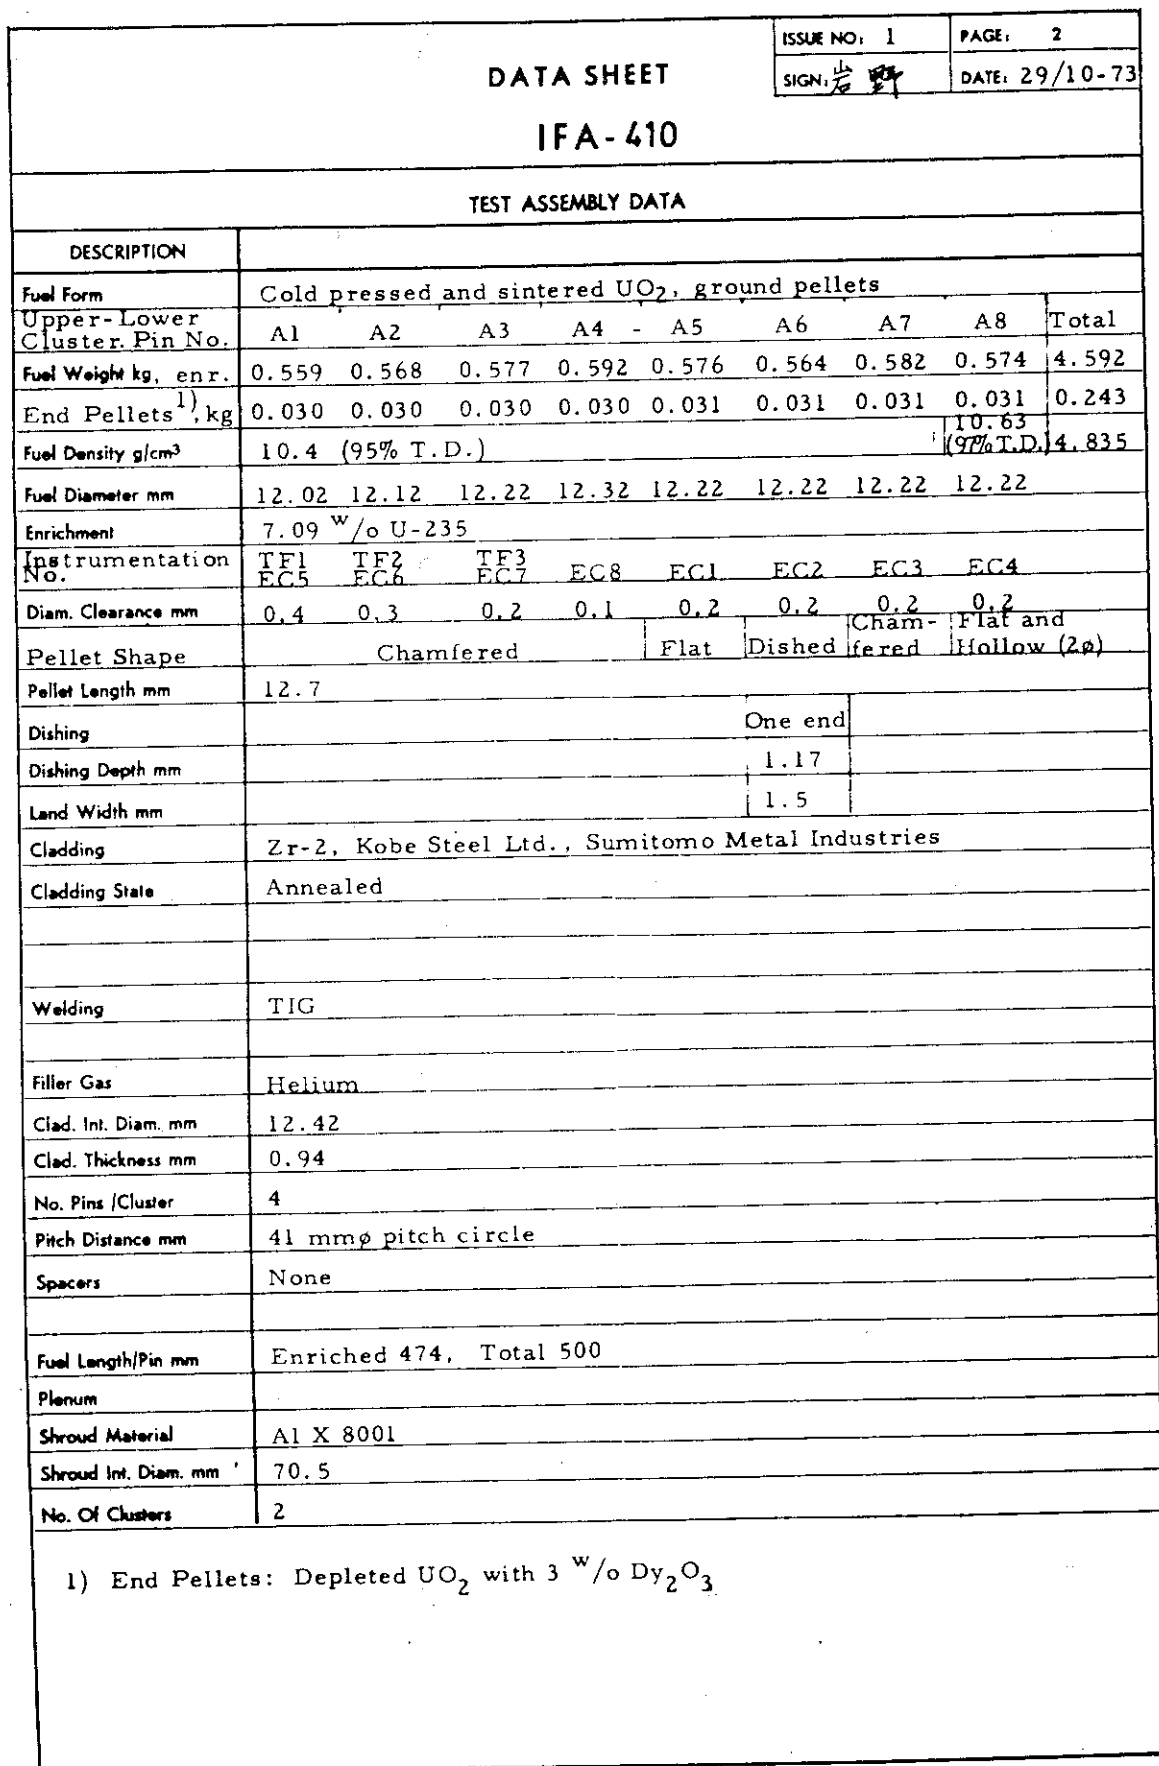 ISSUE NO: 1 PAGE: 2
DATA SHEET SIGN: 岩野 DATE: 29/10-73
IFA-410
TEST ASSEMBLY DATA
DESCRIPTION
Fuel Form Cold pressed and sintered UO2, ground pellets
Upper-Lower Cluster. Pin No. A1 A2 A3 A4 - A5 A6 A7 A8 Total
Fuel Weight kg, enr. 0.559 0.568 0.577 0.592 0.576 0.564 0.582 0.574 4.592
End Pellets 1), kg 0.030 0.030 0.030 0.030 0.031 0.031 0.031 0.031 0.243
Fuel Density g/cm³ 10.4 (95% T.D.) 10.63 (97% T.D.) 4.835
Fuel Diameter mm 12.02 12.12 12.22 12.32 12.22 12.22 12.22 12.22
Enrichment 7.09 w/o U-235
Instrumentation No. TF1 EC5 TF2 EC6 TF3 EC7 EC8 EC1 EC2 EC3 EC4
Diam. Clearance mm 0.4 0.3 0.2 0.1 0.2 0.2 0.2 0.2
Pellet Shape Chamfered Flat Dished Cham-fered Flat and Hollow (2ø)
Pellet Length mm 12.7
Dishing One end
Dishing Depth mm 1.17
Land Width mm 1.5
Cladding Zr-2, Kobe Steel Ltd., Sumitomo Metal Industries
Cladding State Annealed
Welding TIG
Filler Gas Helium
Clad. Int. Diam. mm 12.42
Clad. Thickness mm 0.94
No. Pins /Cluster 4
Pitch Distance mm 41 mmø pitch circle
Spacers None
Fuel Length/Pin mm Enriched 474, Total 500
Plenum
Shroud Material Al X 8001
Shroud Int. Diam. mm 70.5
No. Of Clusters 2
1) End Pellets: Depleted UO2 with 3 w/o Dy2O3